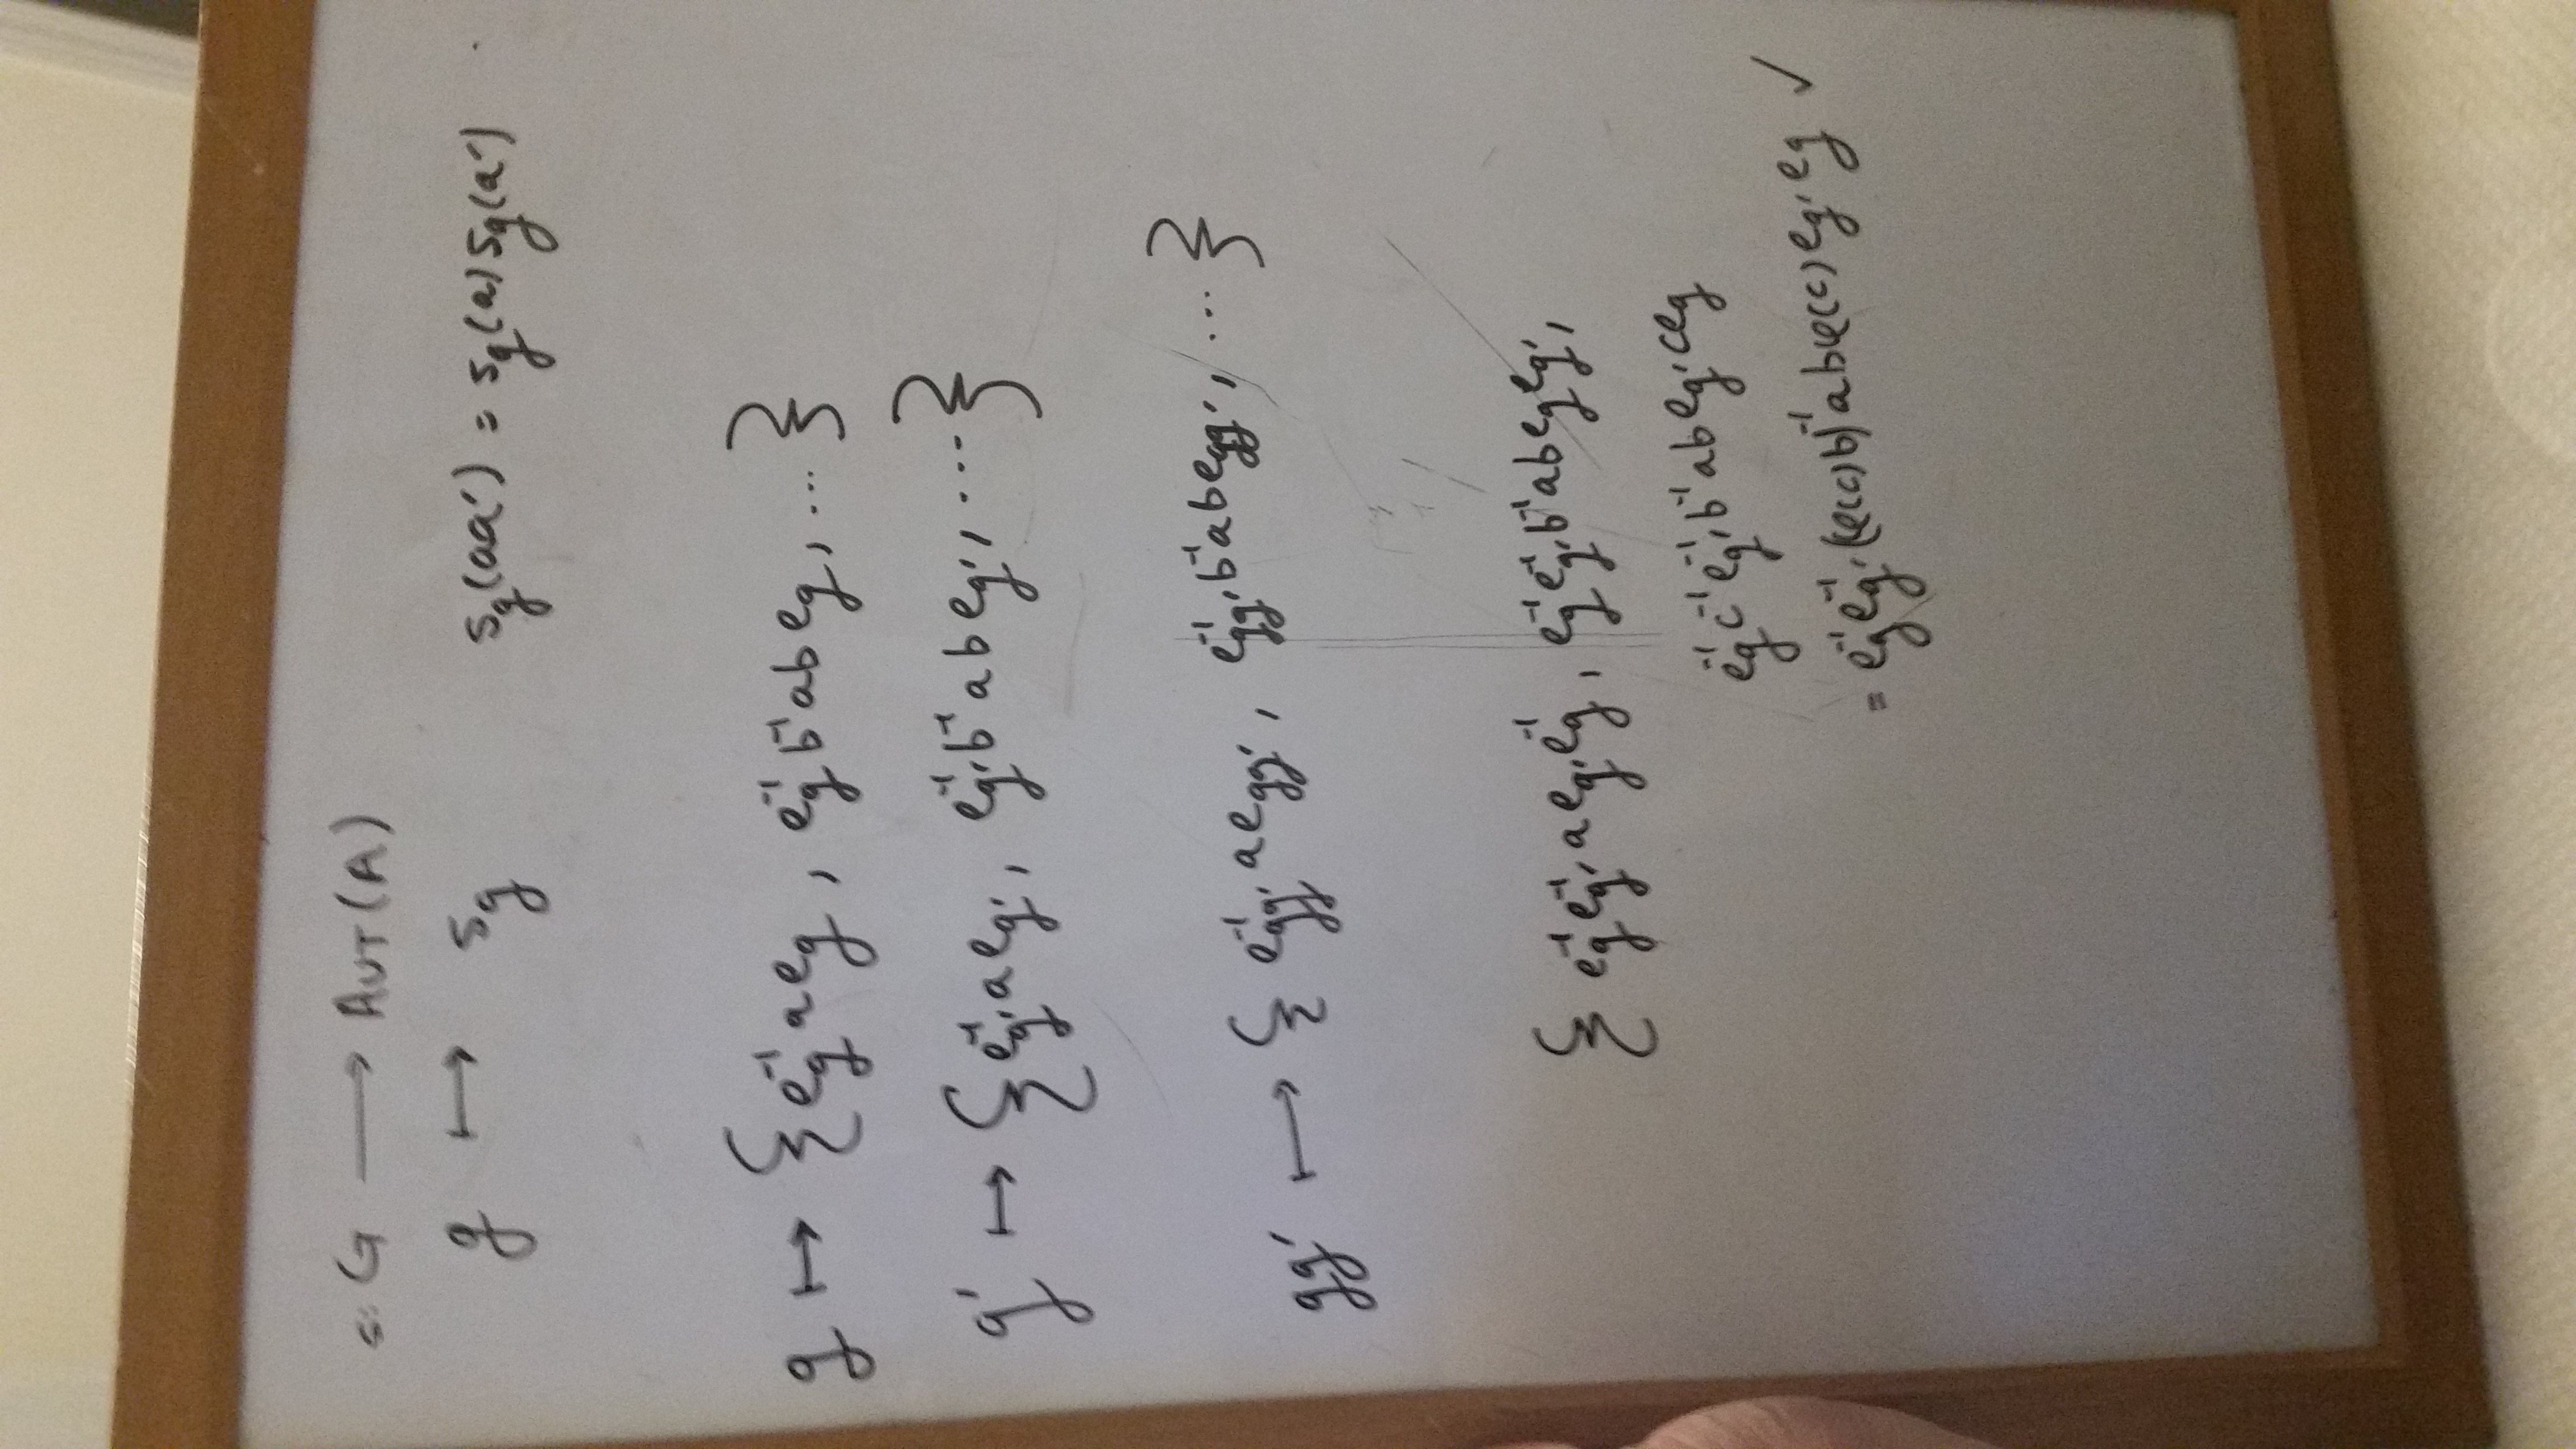 s: G ⟶ AUT(A)
g ⟼ s_g s_g(aa') = s_g(a) s_g(a')
g ↦ { e_g^{-1} a e_g , e_g^{-1} b^{-1} a b e_g , ... }
g' ↦ { e_{g'}^{-1} a e_{g'} , e_{g'}^{-1} b^{-1} a b e_{g'} , ... }
gg' ⟼ { e_{gg'}^{-1} a e_{gg'} , e_{gg'}^{-1} b^{-1} a b e_{gg'} , ... }
{ e_g^{-1} e_{g'}^{-1} a e_{g'} e_g^{-1} , e_g^{-1} e_{g'}^{-1} b^{-1} a b e_g e_{g'} ,
e_g^{-1} c^{-1} e_{g'}^{-1} b^{-1} a b e_{g'} c e_g
= e_g^{-1} e_{g'}^{-1} (φ(c)b)^{-1} a b φ(c) e_{g'} e_g ✓